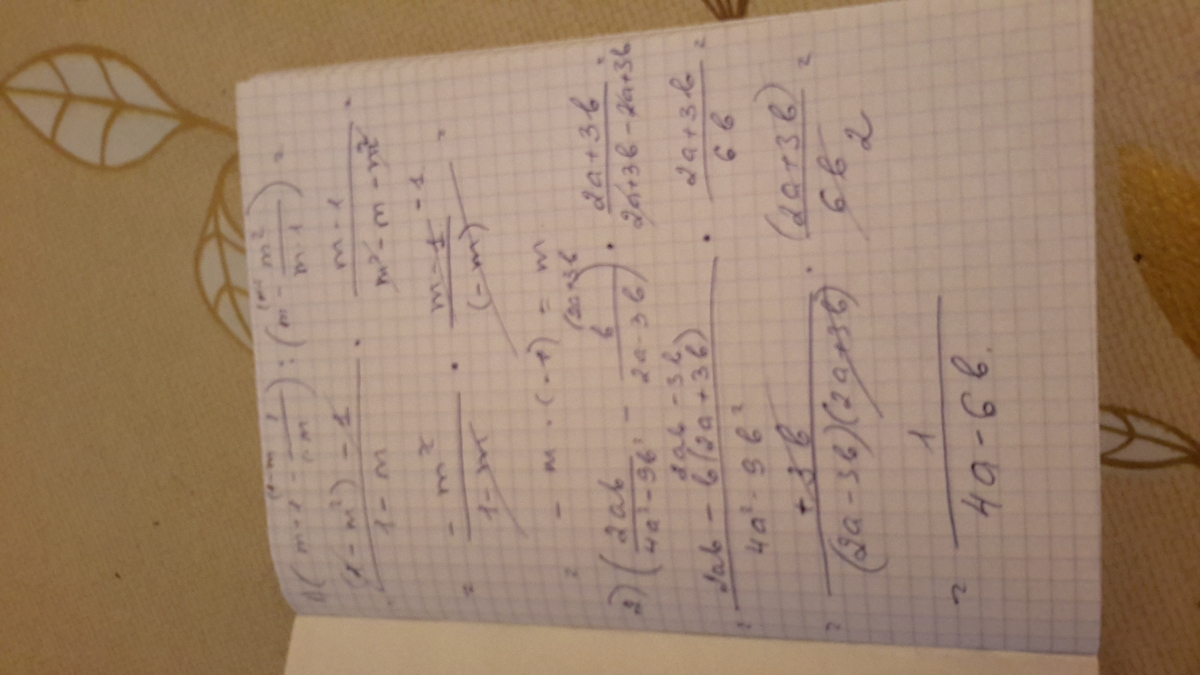 1) (m+1 - 1/(1-m)) : (m - m²/(m-1)) =
((1-m²)-1)/(1-m) · (m-1)/(m²-m-m²) =
= -m²/(1-m) · (m-1)/(-m) -1 =
= -m·(-1) = m
2) (2ab/(4a²-9b²) - b/(2a-3b)) (2a+3b) · (2a+3b)/(2a+3b-2a+3b) =
= (2ab - b(2a+3b))/(4a²-9b²) · (2a+3b)/(6b) =
= +3b/((2a-3b)(2a+3b)) · (2a+3b)/(6b) 2 =
= 1/(4a-6b).